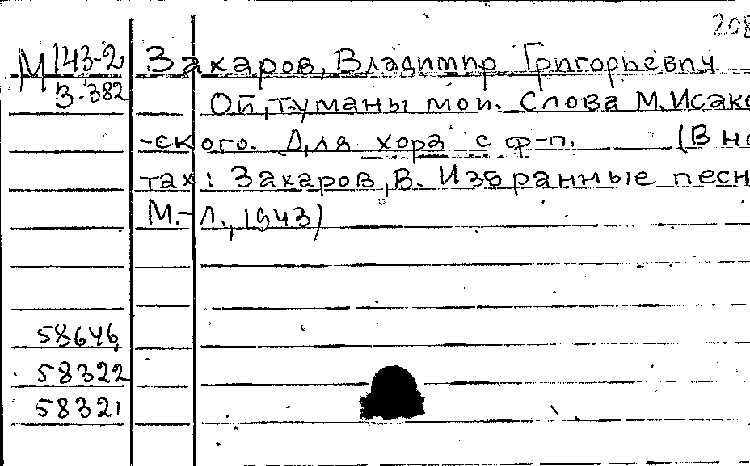 208
М 143-2
З-382
Захаров, Владимир Григорьевич
Ой, туманы мои. Слова М. Исако
-ского. Для хора с ф-п. (В но
тах: Захаров, В. Избранные песн
М.-Л., 1943)
58646
58322
58321